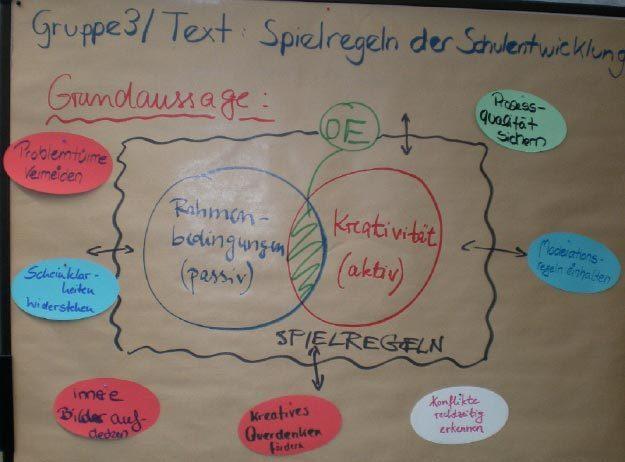 Gruppe3/ Text: Spielregeln der Schulentwicklung
Grundaussage:
OE
Prozess-
qualität
sichern
Problemtürme
vermeiden
Rahmen-
bedingungen
(passiv)
Kreativität
(aktiv)
Scheinklar-
heiten
widerstehen
Moderations-
regeln einhalten
SPIELREGELN
Bilder auf-
decken
Kreatives
Querdenken
fördern
Konflikte
rechtzeitig
erkennen